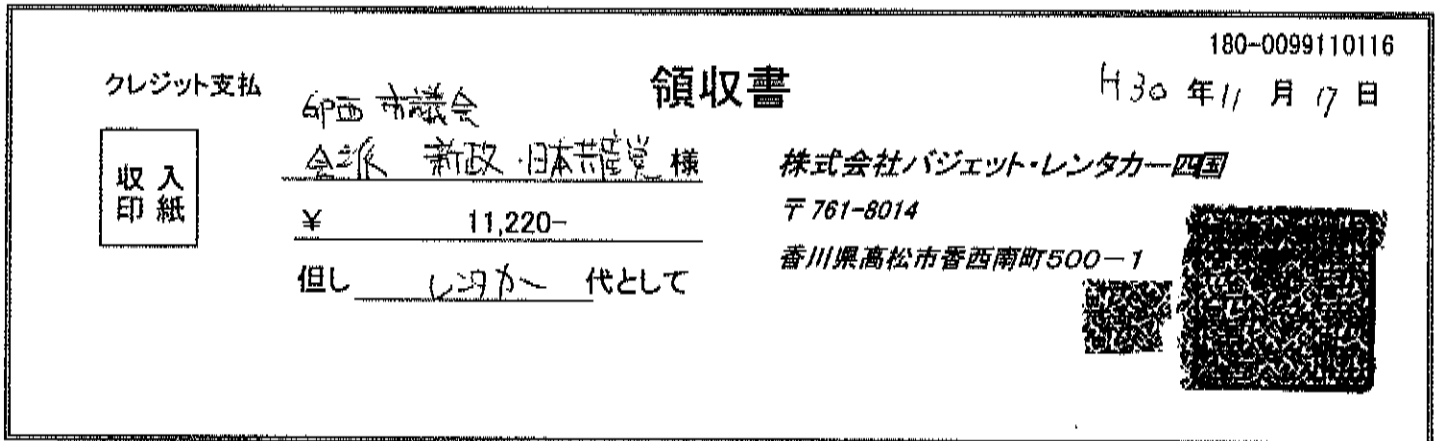 180-0099110116
クレジット支払
領収書
H30年11月17日
印西市議会
会派 新政・日本共産党 様
収入
印紙
¥ 11,220-
但し レンタカー 代として
株式会社バジェット・レンタカー四国
〒761-8014
香川県高松市香西南町500-1